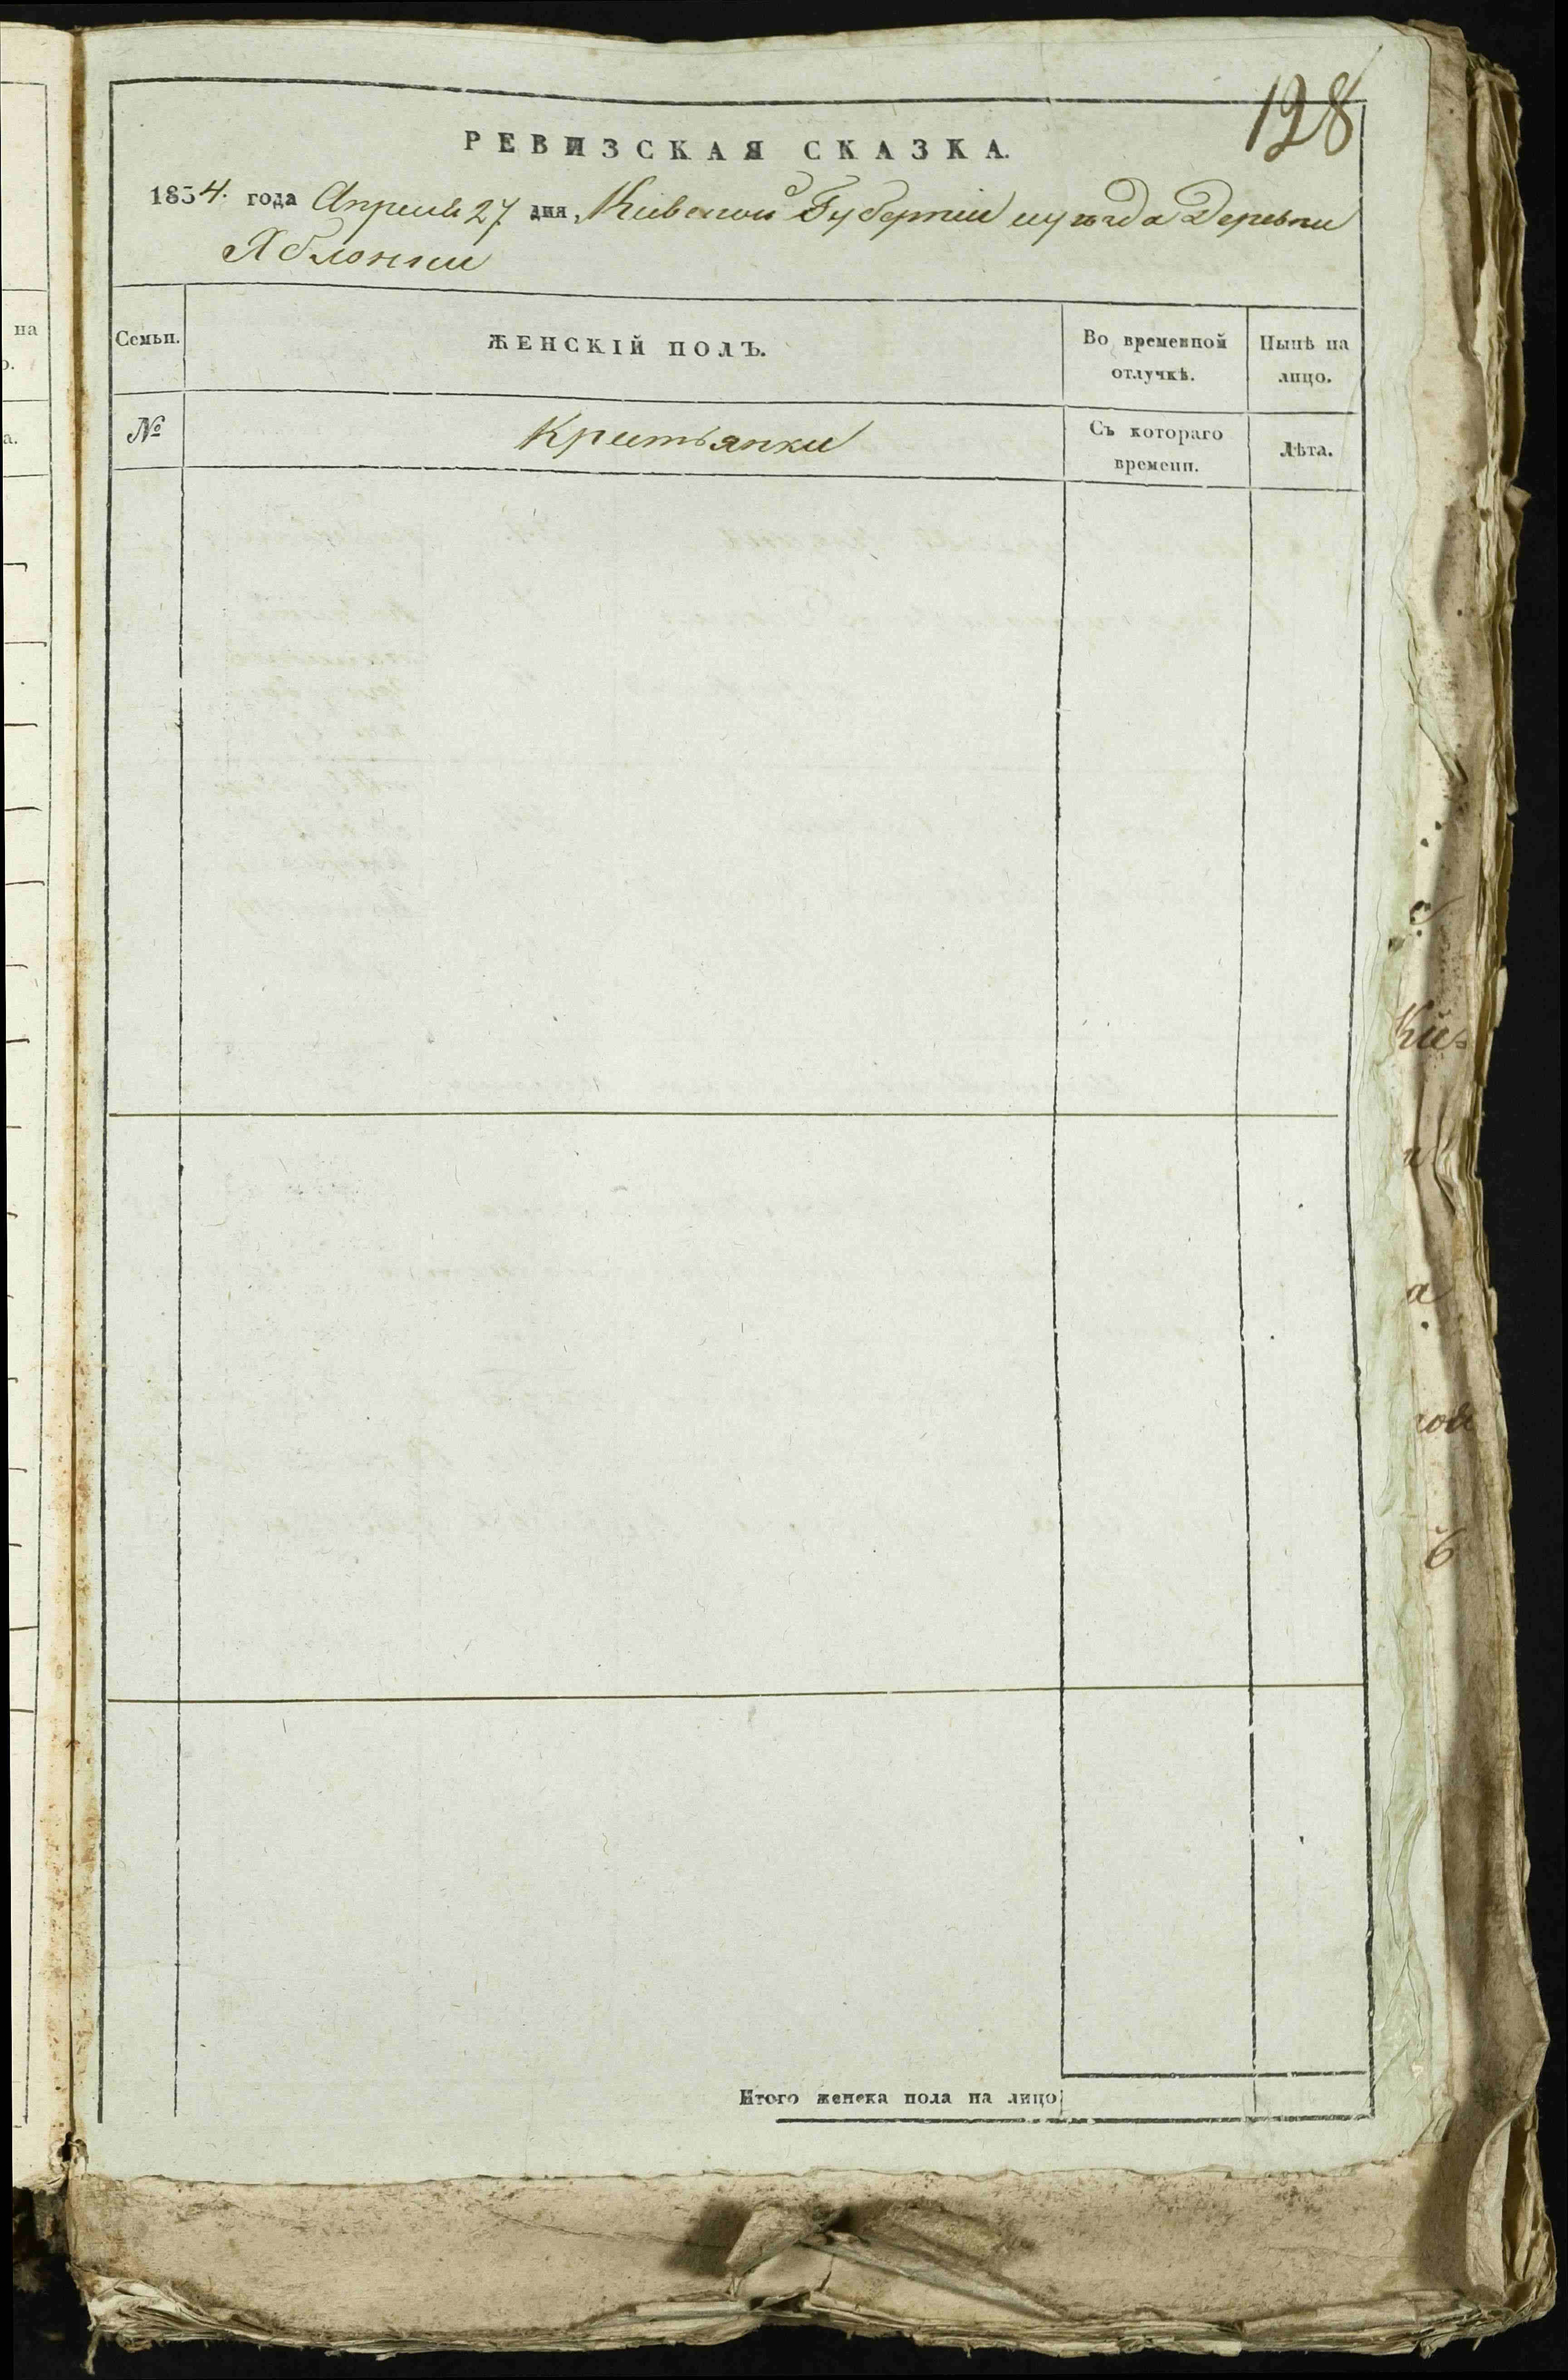 128
РЕВИЗСКАЯ СКАЗКА.
1834. года Апреля 27 дня, Киевской Губернии и уезда Деревни
Яблонки
Семьи.
ЖЕНСКІЙ ПОЛЪ.
Во временной
отлучкѣ.
Нынѣ на
лицо.
№
Крестьянки
Съ котораго
времени.
Лѣта.
Итого женска пола на лицо
на
а.
Кіе=
а
6